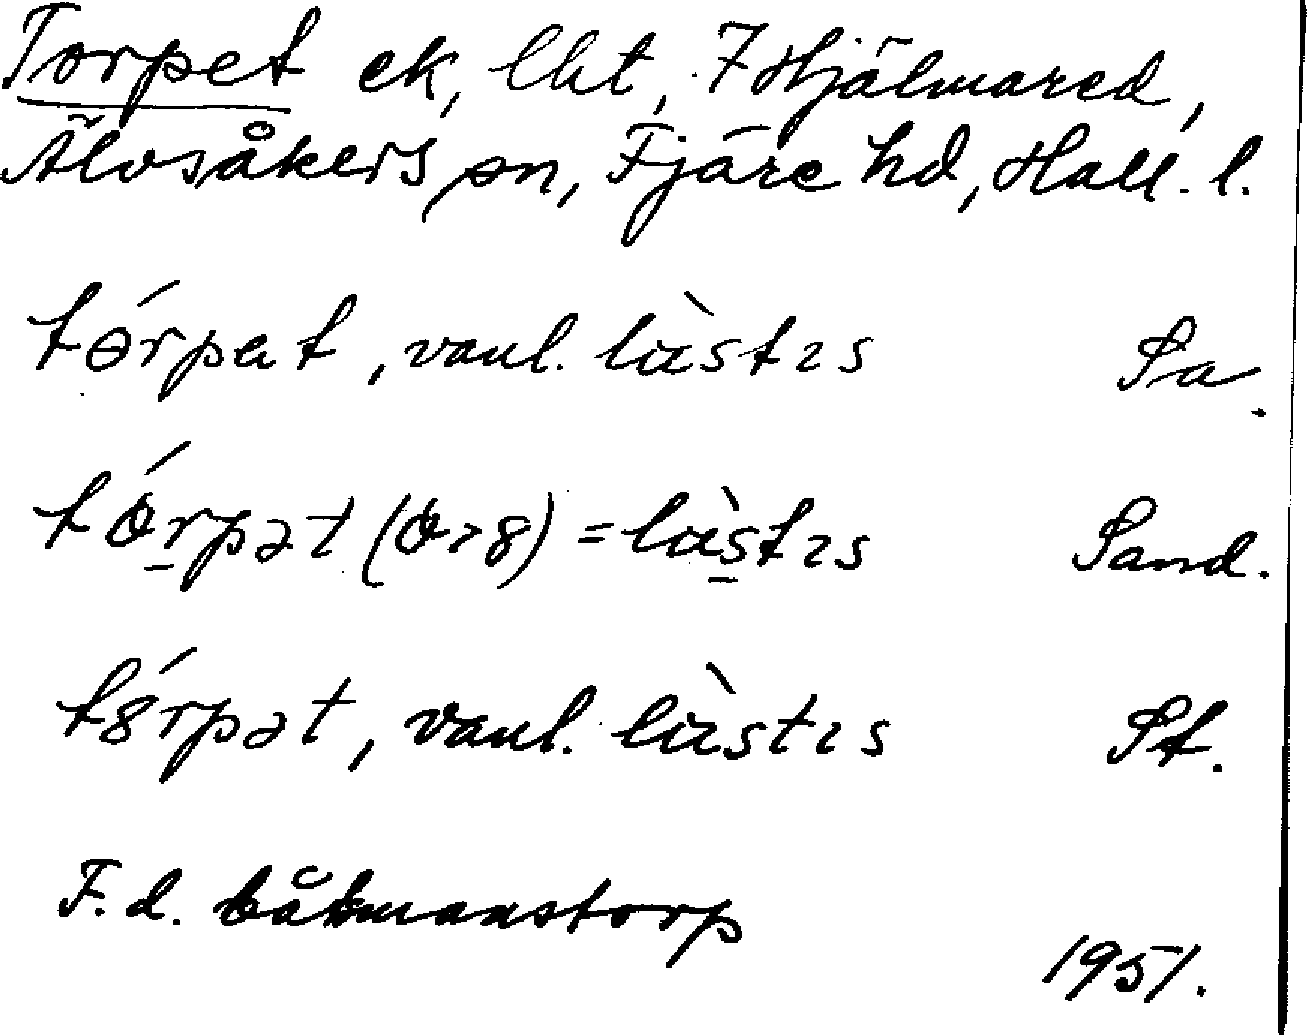 Torpet ek, lht, 7 Hjälmared,
Älvsåkers sn, Fjäre hd, Hall. l.
tórpet, vanl. làstɪs Sa.
tórpət (o>8) = làstɪs Sand.
t8́rpət, vanl. làstɪs St.
F.d. båtsmanstorp
1951.